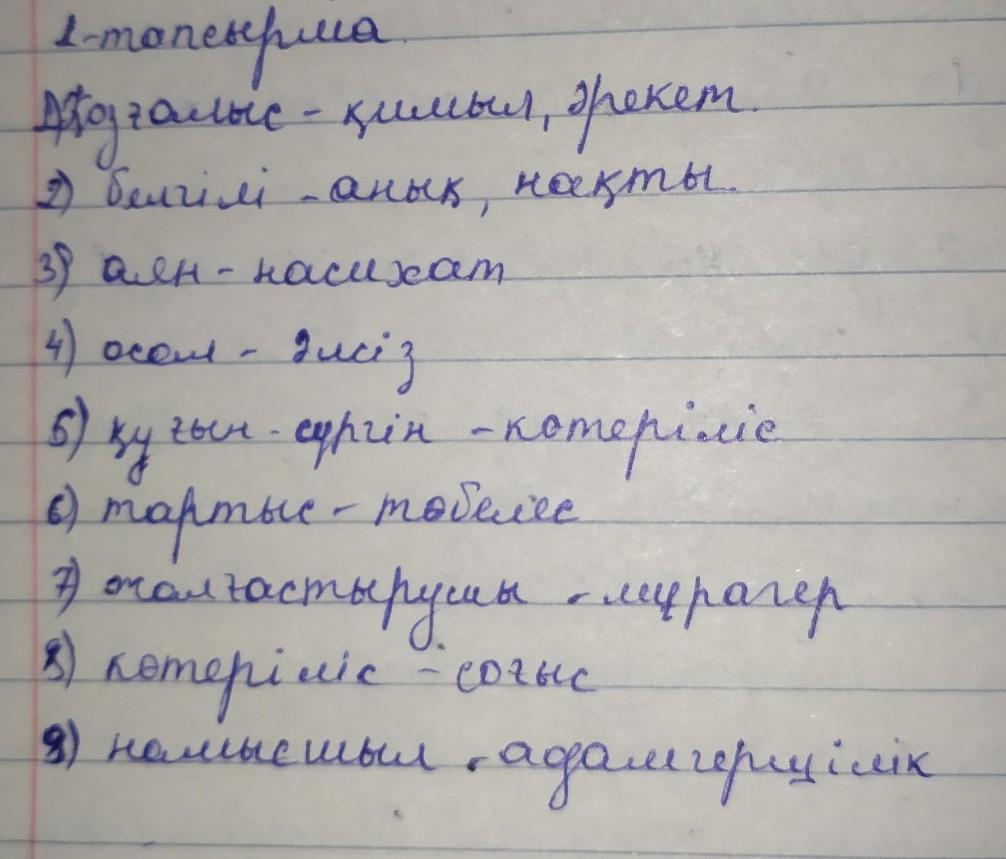 1-тапсырма.
1) Қозғалыс - қимыл, әрекет.
2) белгілі - анық, нақты.
3) аян - насихат
4) осал - әлсіз
5) қуғын - сүргін - көтеріліс
6) тартыс - төбелес
7) жалғастырушы - мұрагер
8) көтеріліс - соғыс
9) намысшыл - адамгершілік